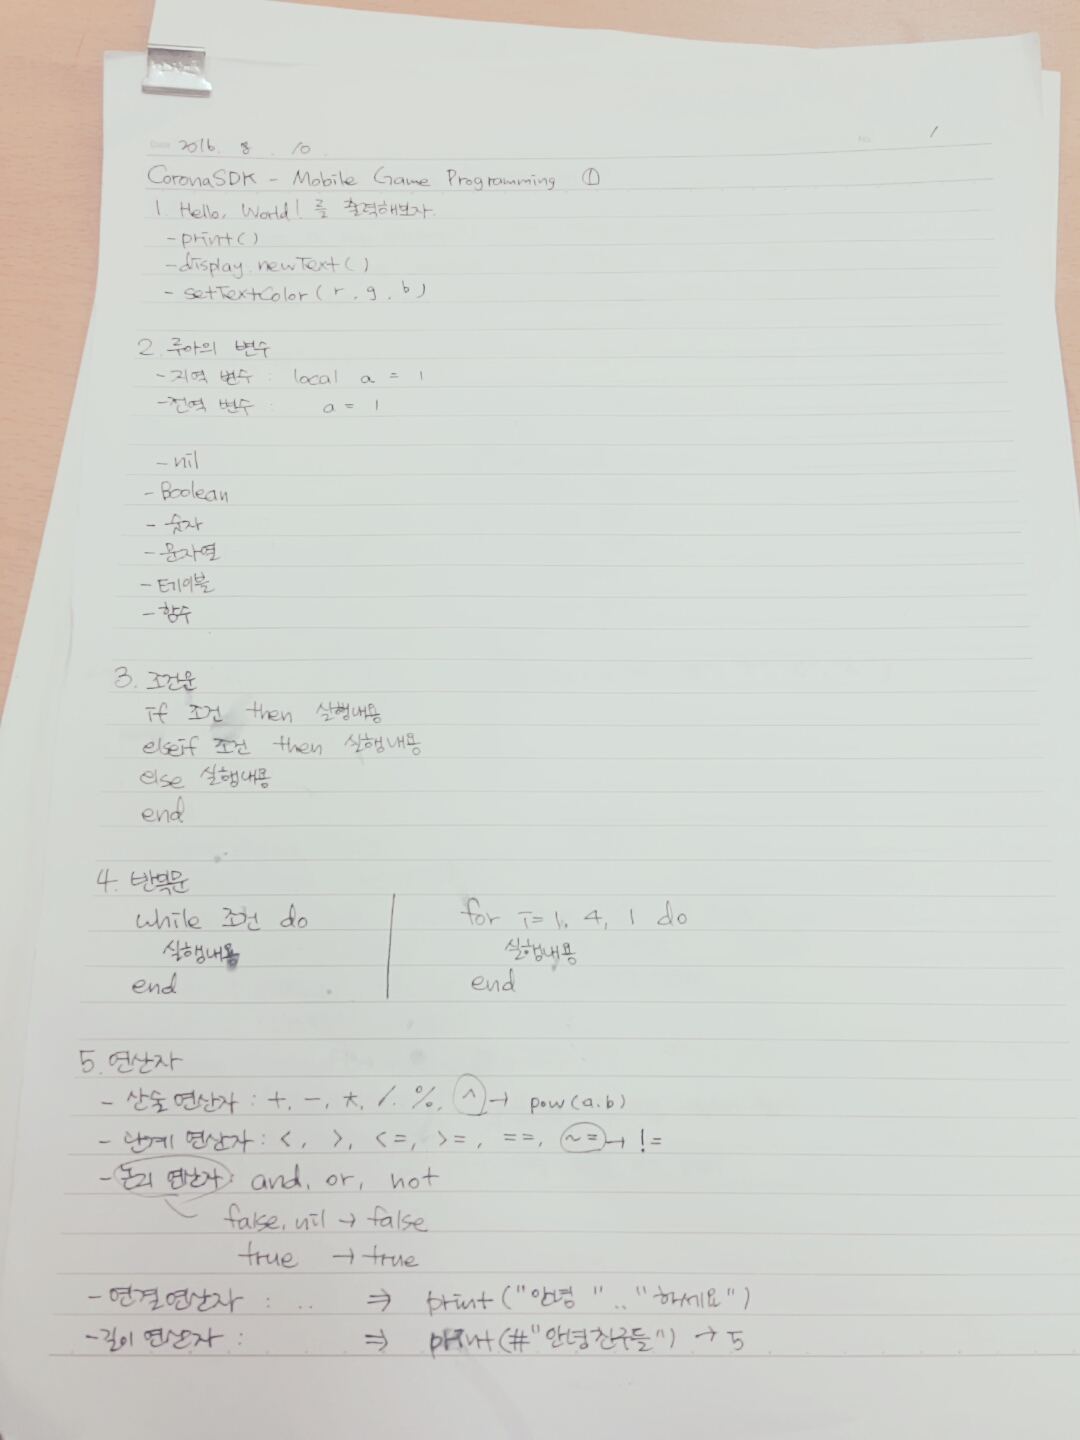 Date 2016. 8. 10. No. 1
CoronaSDK - Mobile Game Programming ①
1. Hello, World! 를 출력해보자.
- print()
- display.newText()
- setTextColor(r, g, b)
2. 루아의 변수
- 지역 변수 : local a = 1
- 전역 변수 : a = 1
- nil
- Boolean
- 숫자
- 문자열
- 테이블
- 함수
3. 조건문
if 조건 then 실행내용
elseif 조건 then 실행내용
else 실행내용
end
4. 반복문
while 조건 do
실행내용
end
for i=1, 4, 1 do
실행내용
end
5. 연산자
- 산술 연산자 : +, -, *, /, %, ^ → pow(a.b)
- 관계 연산자 : <, >, <=, >=, ==, ~= → !=
- 논리 연산자 : and, or, not
false, nil → false
true → true
- 연결 연산자 : .. ⇒ print("안녕 ".."하세요")
- 길이 연산자 : ⇒ print(#"안녕친구들") → 5